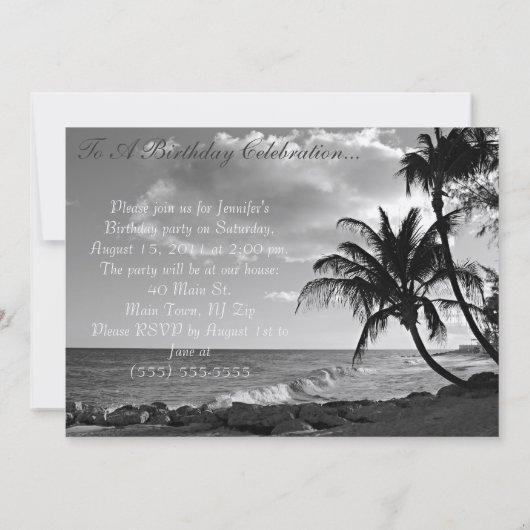 To A Birthday Celebration...
Please join us for Jennifer's
Birthday party on Saturday,
August 15, 2011 at 2:00 pm.
The party will be at our house:
40 Main St.
Main Town, NJ Zip
Please RSVP by August 1st to
Jane at
(555) 555-5555